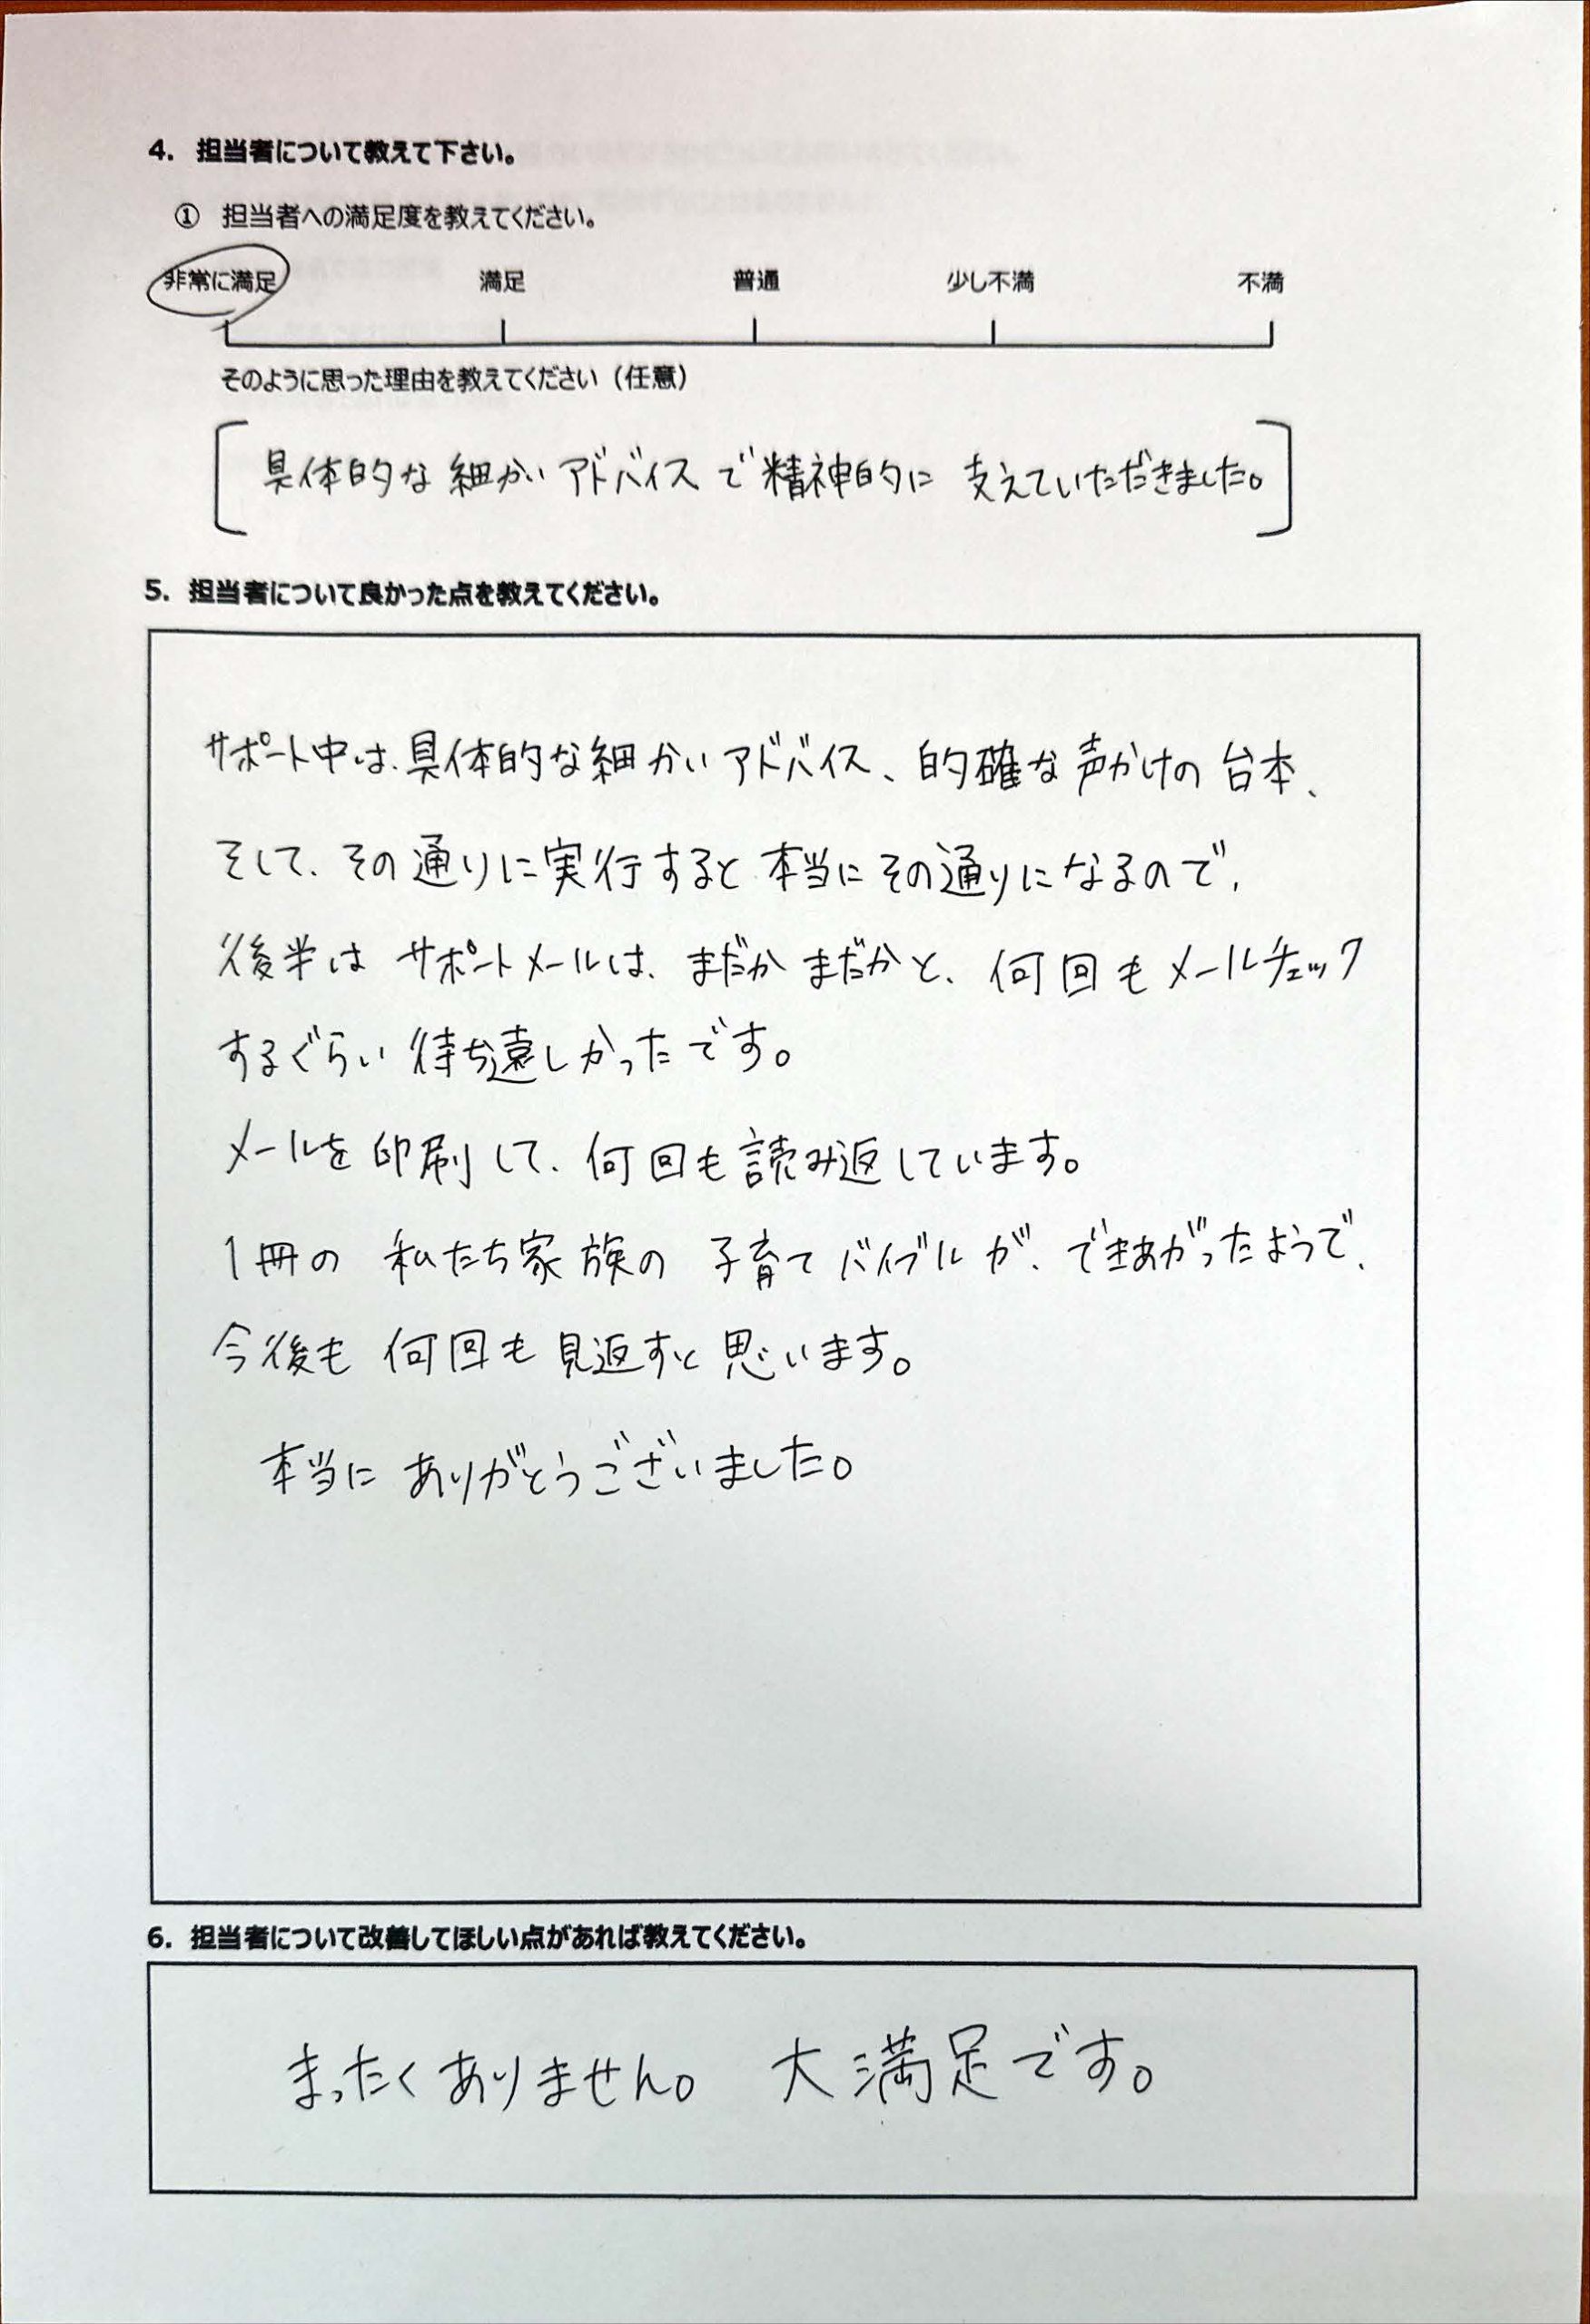 4. 担当者について教えて下さい。
① 担当者への満足度を教えてください。
非常に満足 満足 普通 少し不満 不満
そのように思った理由を教えてください（任意）
具体的な細かいアドバイスで精神的に支えていただきました。
5. 担当者について良かった点を教えてください。
サポート中は、具体的な細かいアドバイス、的確な声かけの台本、
そして、その通りに実行すると本当にその通りになるので、
後半はサポートメールは、まだかまだかと、何回もメールチェック
するぐらい待ち遠しかったです。
メールを印刷して、何回も読み返しています。
1冊の私たち家族の子育てバイブルが、できあがったようで、
今後も何回も見返すと思います。
本当にありがとうございました。
6. 担当者について改善してほしい点があれば教えてください。
まったくありません。 大満足です。